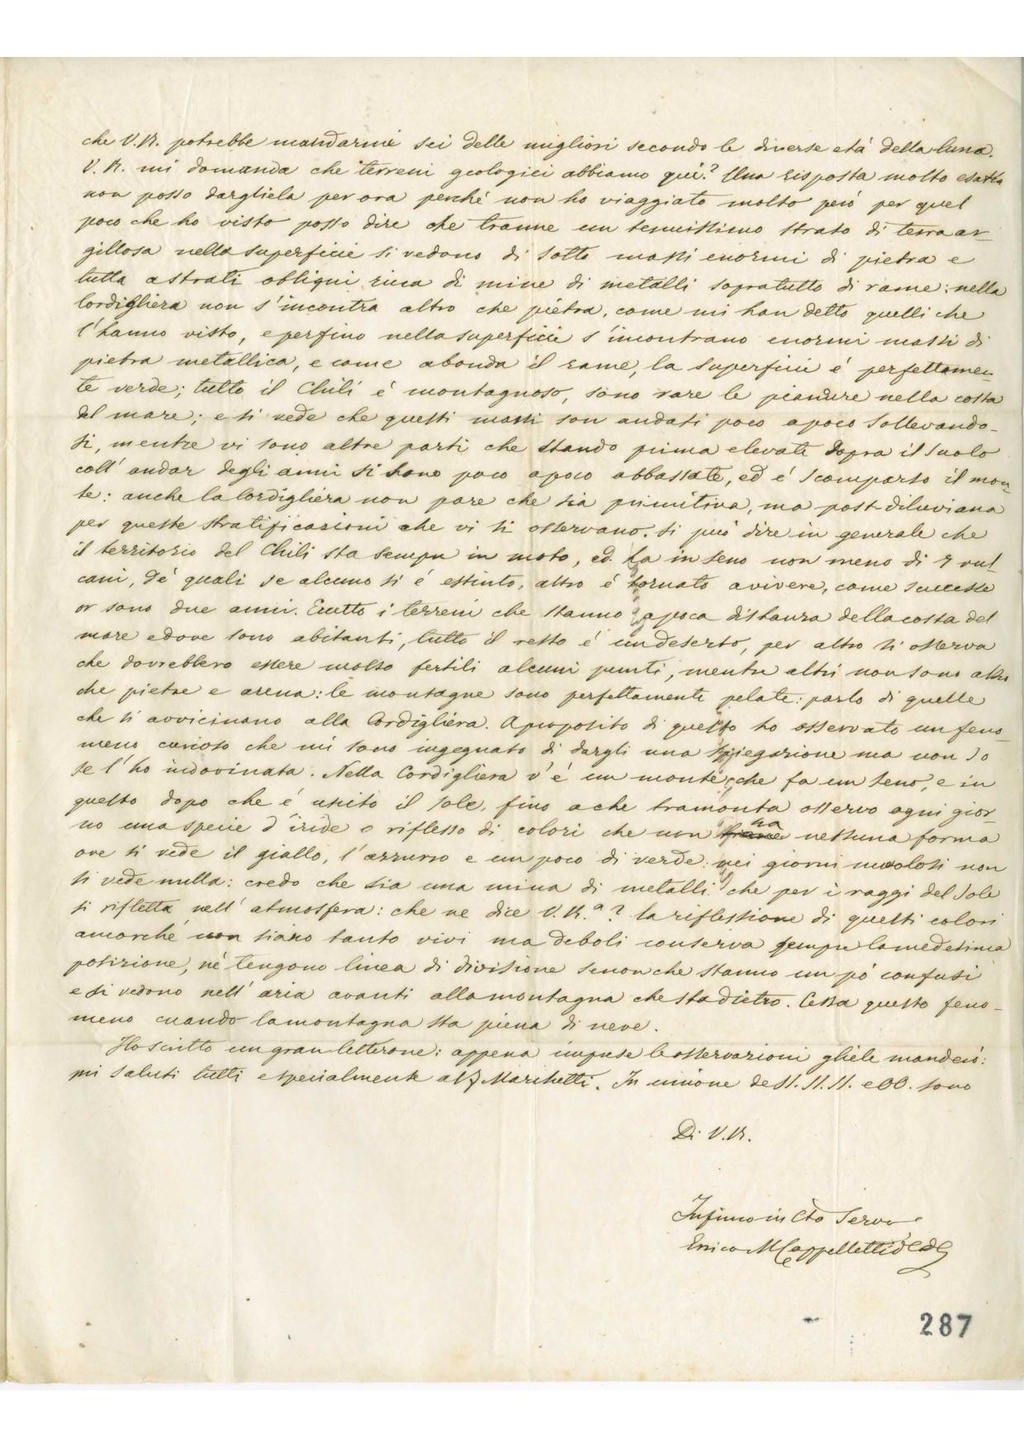 che V.R. potrebbe mandarmi sei delle migliori secondo le diverse età della luna.
V.R. mi domanda che terreni geologici abbiamo quì? Una risposta molto esatta
non posso dargliela per ora perché non ho viaggiato molto però per quel
poco che ho visto posso dire che tranne un tenuissimo strato di terra ar-
gillosa nella superficie si vedono di sotto massi enormi di pietra e
tutta a strati obliqui, ricca di mine di metalli sopratutto di rame: nella
Cordigliera non s'incontra altro che pietra, come mi han detto quelli che
l'hanno visto, e perfino nella superficie s'incontrano enormi massi di
pietra metallica, e come abonda il rame, la superficie é perfettamen-
te verde; tutto il Chilì é montagnoso, sono rare le pianure nella costa
del mare; e si vede che questi massi son andati poco a poco sollevando-
si, mentre vi sono altre parti che stando prima elevate sopra il suolo
coll'andar degli anni si sono poco a poco abbassate, ed é scomparso il mon-
te: anche la Cordigliera non pare che sia primitiva, ma post-diluviana
per queste stratificazioni che vi si osservano. Si può dire in generale che
il territorio del Chilì sta sempre in moto, ed ha in seno non meno di 7 vul
cani, de' quali se alcuno si é estinto, altro é tornato a vivere, come successe
or sono due anni. Eccetto i terreni che stanno a poca distanza della costa del
mare e dove sono abitanti, tutto il resto é un deserto, per altro si osserva
che dovrebbero essere molto fertili alcuni punti, mentre altri non sono altro
che pietre e arena: le montagne sono perfettamente pelate: parlo di quelle
che si avvicinano alla Cordigliera. A proposito di questo ho osservato un feno-
meno curioso che mi sono ingegnato di dargli una spiegazione ma non so
se l'ho indovinata. Nella Cordigliera v'é un monte, che fa un seno, e in
questo dopo che é uscito il sole, fino a che tramonta osservo ogni gior-
no una specie d'iride o riflesso di colori che non ha nessuna forma
ove si vede il giallo, l'azzurro e un poco di verde: nei giorni nuvolosi non
si vede nulla: credo che sia una mina di metalli che per i raggi del Sole
si rifletta nell'atmosfera: che ne dice V.R.ª? la riflessione di questi colori
ancorché non siano tanto vivi ma deboli conserva sempre la medesima
posizione, né tengono linea di divisione senonche stanno un pò confusi
e si vedono nell'aria avanti alla montagna che sta dietro. Cessa questo feno-
meno cuando la montagna sta piena di neve.
Ho scritto un gran letterone: appena impresse le osservazioni gliele manderò:
mi saluti tutti e specialmente al Marchetti. In unione de SS. SS. SS. e OO. sono
Di V.R.
Infimo in Cto Servo
Enrico M Cappelletti d C d G
287